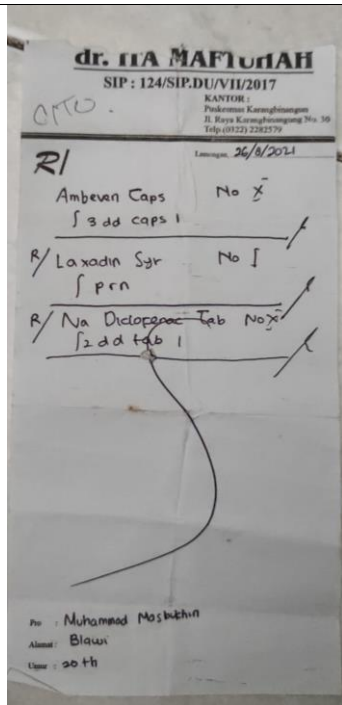 dr. ITA MAFTUHAH
SIP : 124/SIP.DU/VII/2017
KANTOR :
Puskesmas Karangbinangun
Jl. Raya Karangbinangung No. 50
Telp (0322) 2282579
CITO.
Lamongan, 26/8/2021
R/
Ambeven Caps No X
∫ 3 dd caps 1
R/ Laxadin Syr No I
∫ prn
R/ Na Diclofenac Tab No X
∫ 2 dd tab 1
Pro : Muhammad Masbukhin
Alamat : Blawi
Umur : 20 th